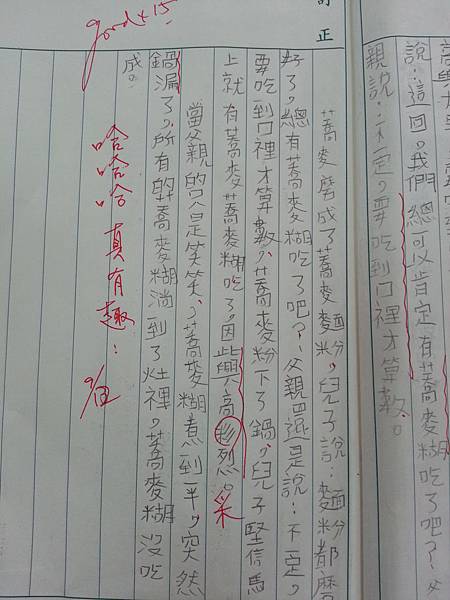 說：這回，我們總可以肯定有蕎麥糊吃了吧？父
親說：不一定，要吃到口裡才算數。
訂正
蕎麥磨成了蕎麥麵粉，兒子說：麵粉都磨
好了，總有蕎麥糊吃了吧？父親還是說：不一定，
要吃到口裡才算數。蕎麥粉下了鍋，兒子堅信馬
上就有蕎麥蕎麥糊吃了，因興高彩烈。采
當父親的只是笑笑，蕎麥糊煮到一半，突然
鍋漏了，所有的蕎麥糊淌到了灶裡。蕎麥糊沒吃
成。
good x 15
哈哈哈 真有趣！